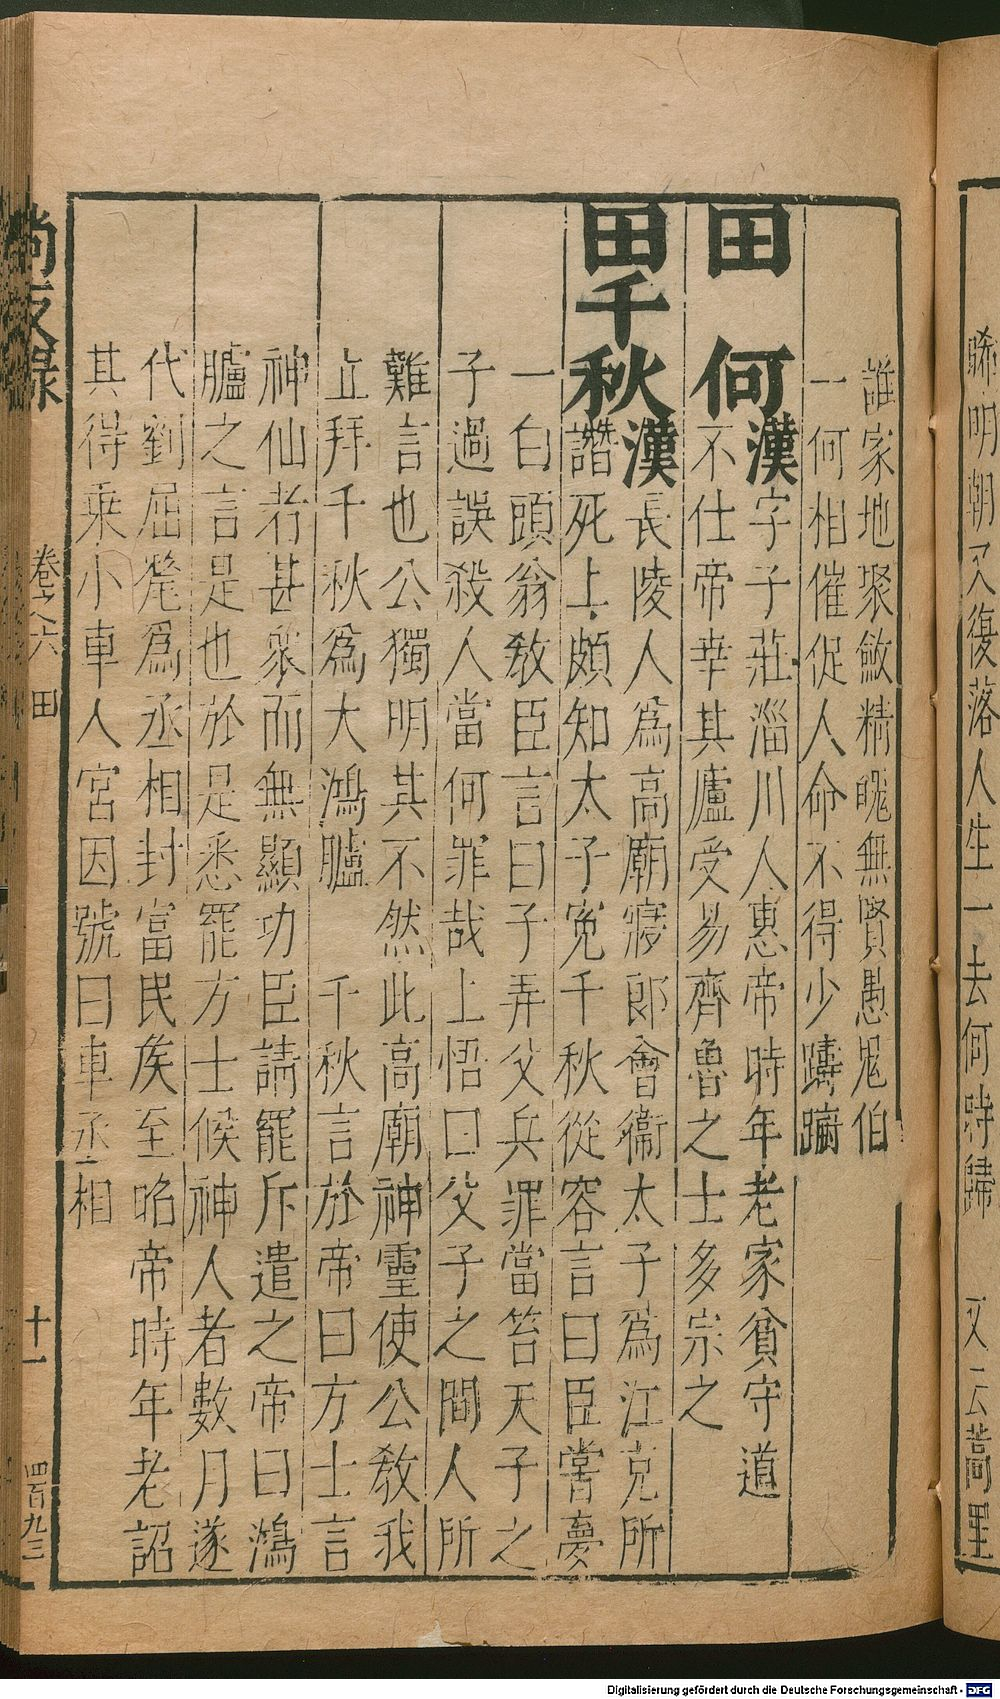 晞明朝又復落人生一去何時歸　又云蒿里
誰家地聚斂精魄無賢愚鬼伯
一何相催促人命不得少躊躕
田何　漢字子莊淄川人惠帝時年老家貧守道
不仕帝幸其廬受易齊魯之士多宗之
田千秋　漢長陵人爲高廟寢郎會衞太子爲江充所
譖死上頗知太子冤千秋從容言曰臣嘗夢
一白頭翁敎臣言曰子弄父兵罪當笞天子之
子過誤殺人當何罪哉上悟曰父子之間人所
難言也公獨明其不然此高廟神靈使公敎我
立拜千秋爲大鴻臚　千秋言於帝曰方士言
神仙者甚衆而無顯功臣請罷斥遣之帝曰鴻
臚之言是也於是悉罷方士候神人者數月遂
代劉屈氂爲丞相封富民矦至昭帝時年老詔
其得乘小車入宮因號曰車丞相
尚友錄　卷之六　田　十一　四百九三
Digitalisierung gefördert durch die Deutsche Forschungsgemeinschaft - DFG